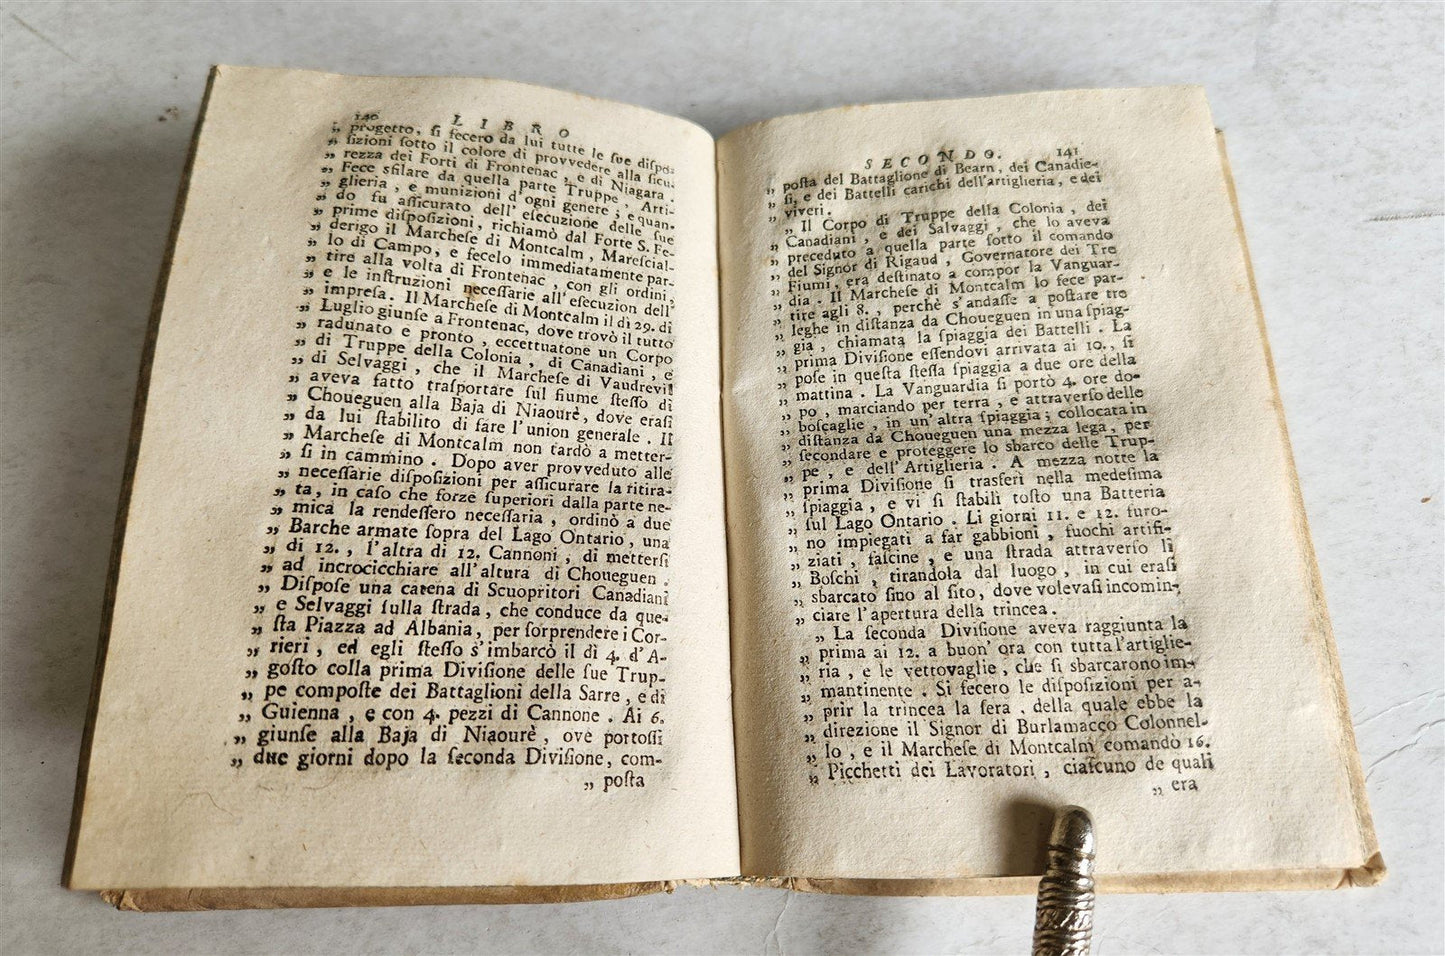 140 LIBRO
„ progetto, ſi fecero da lui tutte le ſue diſpo-
„ ſizioni ſotto il colore di provvedere alla ſicu-
„ rezza dei Forti di Frontenac, e di Niagara.
„ Fece sfilare da quella parte Truppe, Arti-
„ glieria, e munizioni d'ogni genere; e quan-
„ do fu aſſicurato dell'eſecuzione delle ſue
„ prime diſpoſizioni, richiamò dal Forte S. Fe-
„ derigo il Marcheſe di Montcalm, Mareſcial-
„ lo di Campo, e fecelo immediatamente par-
„ tire alla volta di Frontenac, con gli ordini,
„ e le inſtruzioni neceſſarie all'eſecuzion dell'
„ impreſa. Il Marcheſe di Montcalm il dì 29. di
„ Luglio giunſe a Frontenac, dove trovò il tutto
„ radunato e pronto, eccettuatone un Corpo
„ di Truppe della Colonia, di Canadiani, e
„ di Selvaggi, che il Marcheſe di Vaudrevil
„ aveva fatto traſportare ſul fiume ſteſſo di
„ Choueguen alla Baja di Niaourè, dove eraſi
„ da lui ſtabilito di fare l'union generale. Il
„ Marcheſe di Montcalm non tardò a metter-
„ ſi in cammino. Dopo aver provveduto alle
„ neceſſarie diſpoſizioni per aſſicurare la ritira-
„ ta, in caſo che forze ſuperiori dalla parte ne-
„ mica la rendeſſero neceſſaria, ordinò a due
„ Barche armate ſopra del Lago Ontario, una
„ di 12., l'altra di 12. Cannoni, di metterſi
„ ad incrocicchiare all'altura di Choueguen.
„ Diſpoſe una catena di Scuopritori Canadiani
„ e Selvaggi ſulla ſtrada, che conduce da que-
„ ſta Piazza ad Albania, per ſorprendere i Cor-
„ rieri, ed egli ſteſſo s'imbarcò il dì 4. d'A-
„ goſto colla prima Diviſione delle ſue Trup-
„ pe compoſte dei Battaglioni della Sarre, e di
„ Guienna, e con 4. pezzi di Cannone. Ai 6.
„ giunſe alla Baja di Niaourè, ove portoſſi
„ due giorni dopo la ſeconda Diviſione, com-
„ poſta
SECONDO. 141
„ poſta del Battaglione di Bearn, dei Canadie-
„ ſi, e dei Battelli carichi dell'artiglieria, e dei
„ viveri.
„ Il Corpo di Truppe della Colonia, dei
„ Canadiani, e dei Selvaggi, che lo aveva
„ preceduto a quella parte ſotto il comando
„ del Signor di Rigaud, Governatore dei Tre
„ Fiumi, era deſtinato a compor la Vanguar-
„ dia. Il Marcheſe di Montcalm lo fece par-
„ tire agli 8., perchè s'andaſſe a poſtare tre
„ leghe in diſtanza da Choueguen in una ſpiag-
„ gia, chiamata la ſpiaggia dei Battelli. La
„ prima Diviſione eſſendovi arrivata ai 10., ſi
„ poſe in queſta ſteſſa ſpiaggia a due ore della
„ mattina. La Vanguardia ſi portò 4. ore do-
„ po, marciando per terra, e attraverſo delle
„ boſcaglie, in un'altra ſpiaggia; collocata in
„ diſtanza da Choueguen una mezza lega, per
„ ſecondare e proteggere lo sbarco delle Trup-
„ pe, e dell'Artiglieria. A mezza notte la
„ prima Diviſione ſi trasferì nella medeſima
„ ſpiaggia, e vi ſi ſtabilì toſto una Batteria
„ ſul Lago Ontario. Li giorni 11. e 12. furo-
„ no impiegati a far gabbioni, fuochi artifi-
„ ziati, faſcine, e una ſtrada attraverſo li
„ Boſchi, tirandola dal luogo, in cui eraſi
„ sbarcato ſino al ſito, dove volevaſi incomin-
„ ciare l'apertura della trincea.
„ La ſeconda Diviſione aveva raggiunta la
„ prima ai 12. a buon'ora con tutta l'artiglie-
„ ria, e le vettovaglie, che ſi sbarcarono im-
„ mantinente. Si fecero le diſpoſizioni per a-
„ prir la trincea la ſera, della quale ebbe la
„ direzione il Signor di Burlamacco Colonnel-
„ lo, e il Marcheſe di Montcalm comandò 16.
„ Picchetti dei Lavoratori, ciaſcuno de quali
„ era